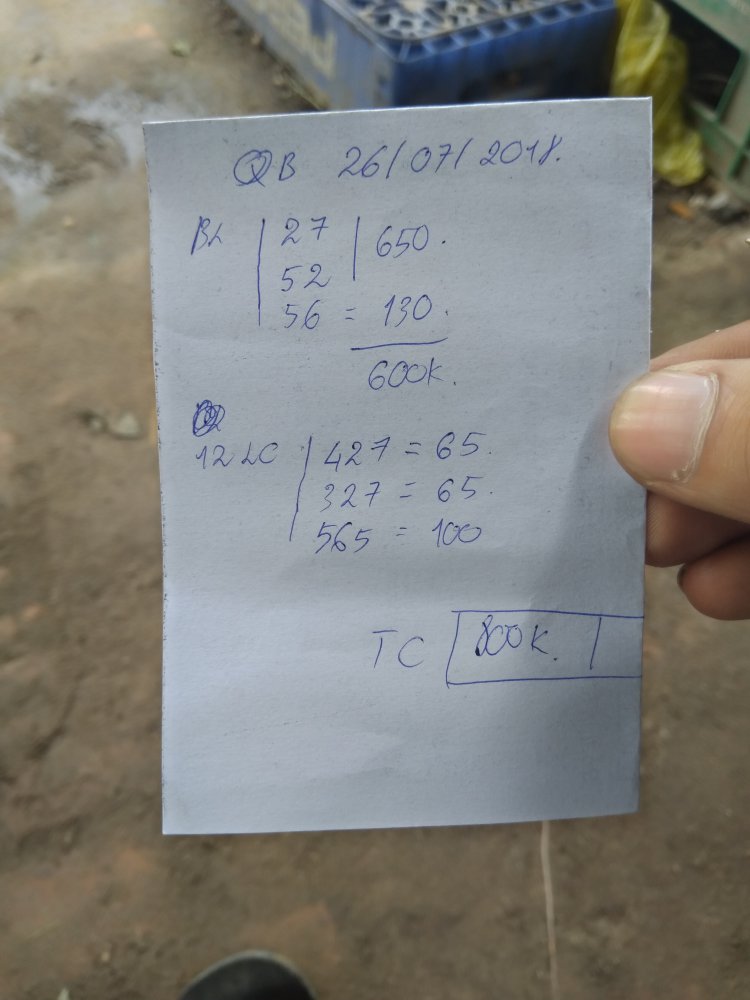 QB 26/07/2018.
BL 27 650.
52
56 = 130.
600K.
12 LC 427 = 65.
327 = 65.
565 = 100
TC 800K.